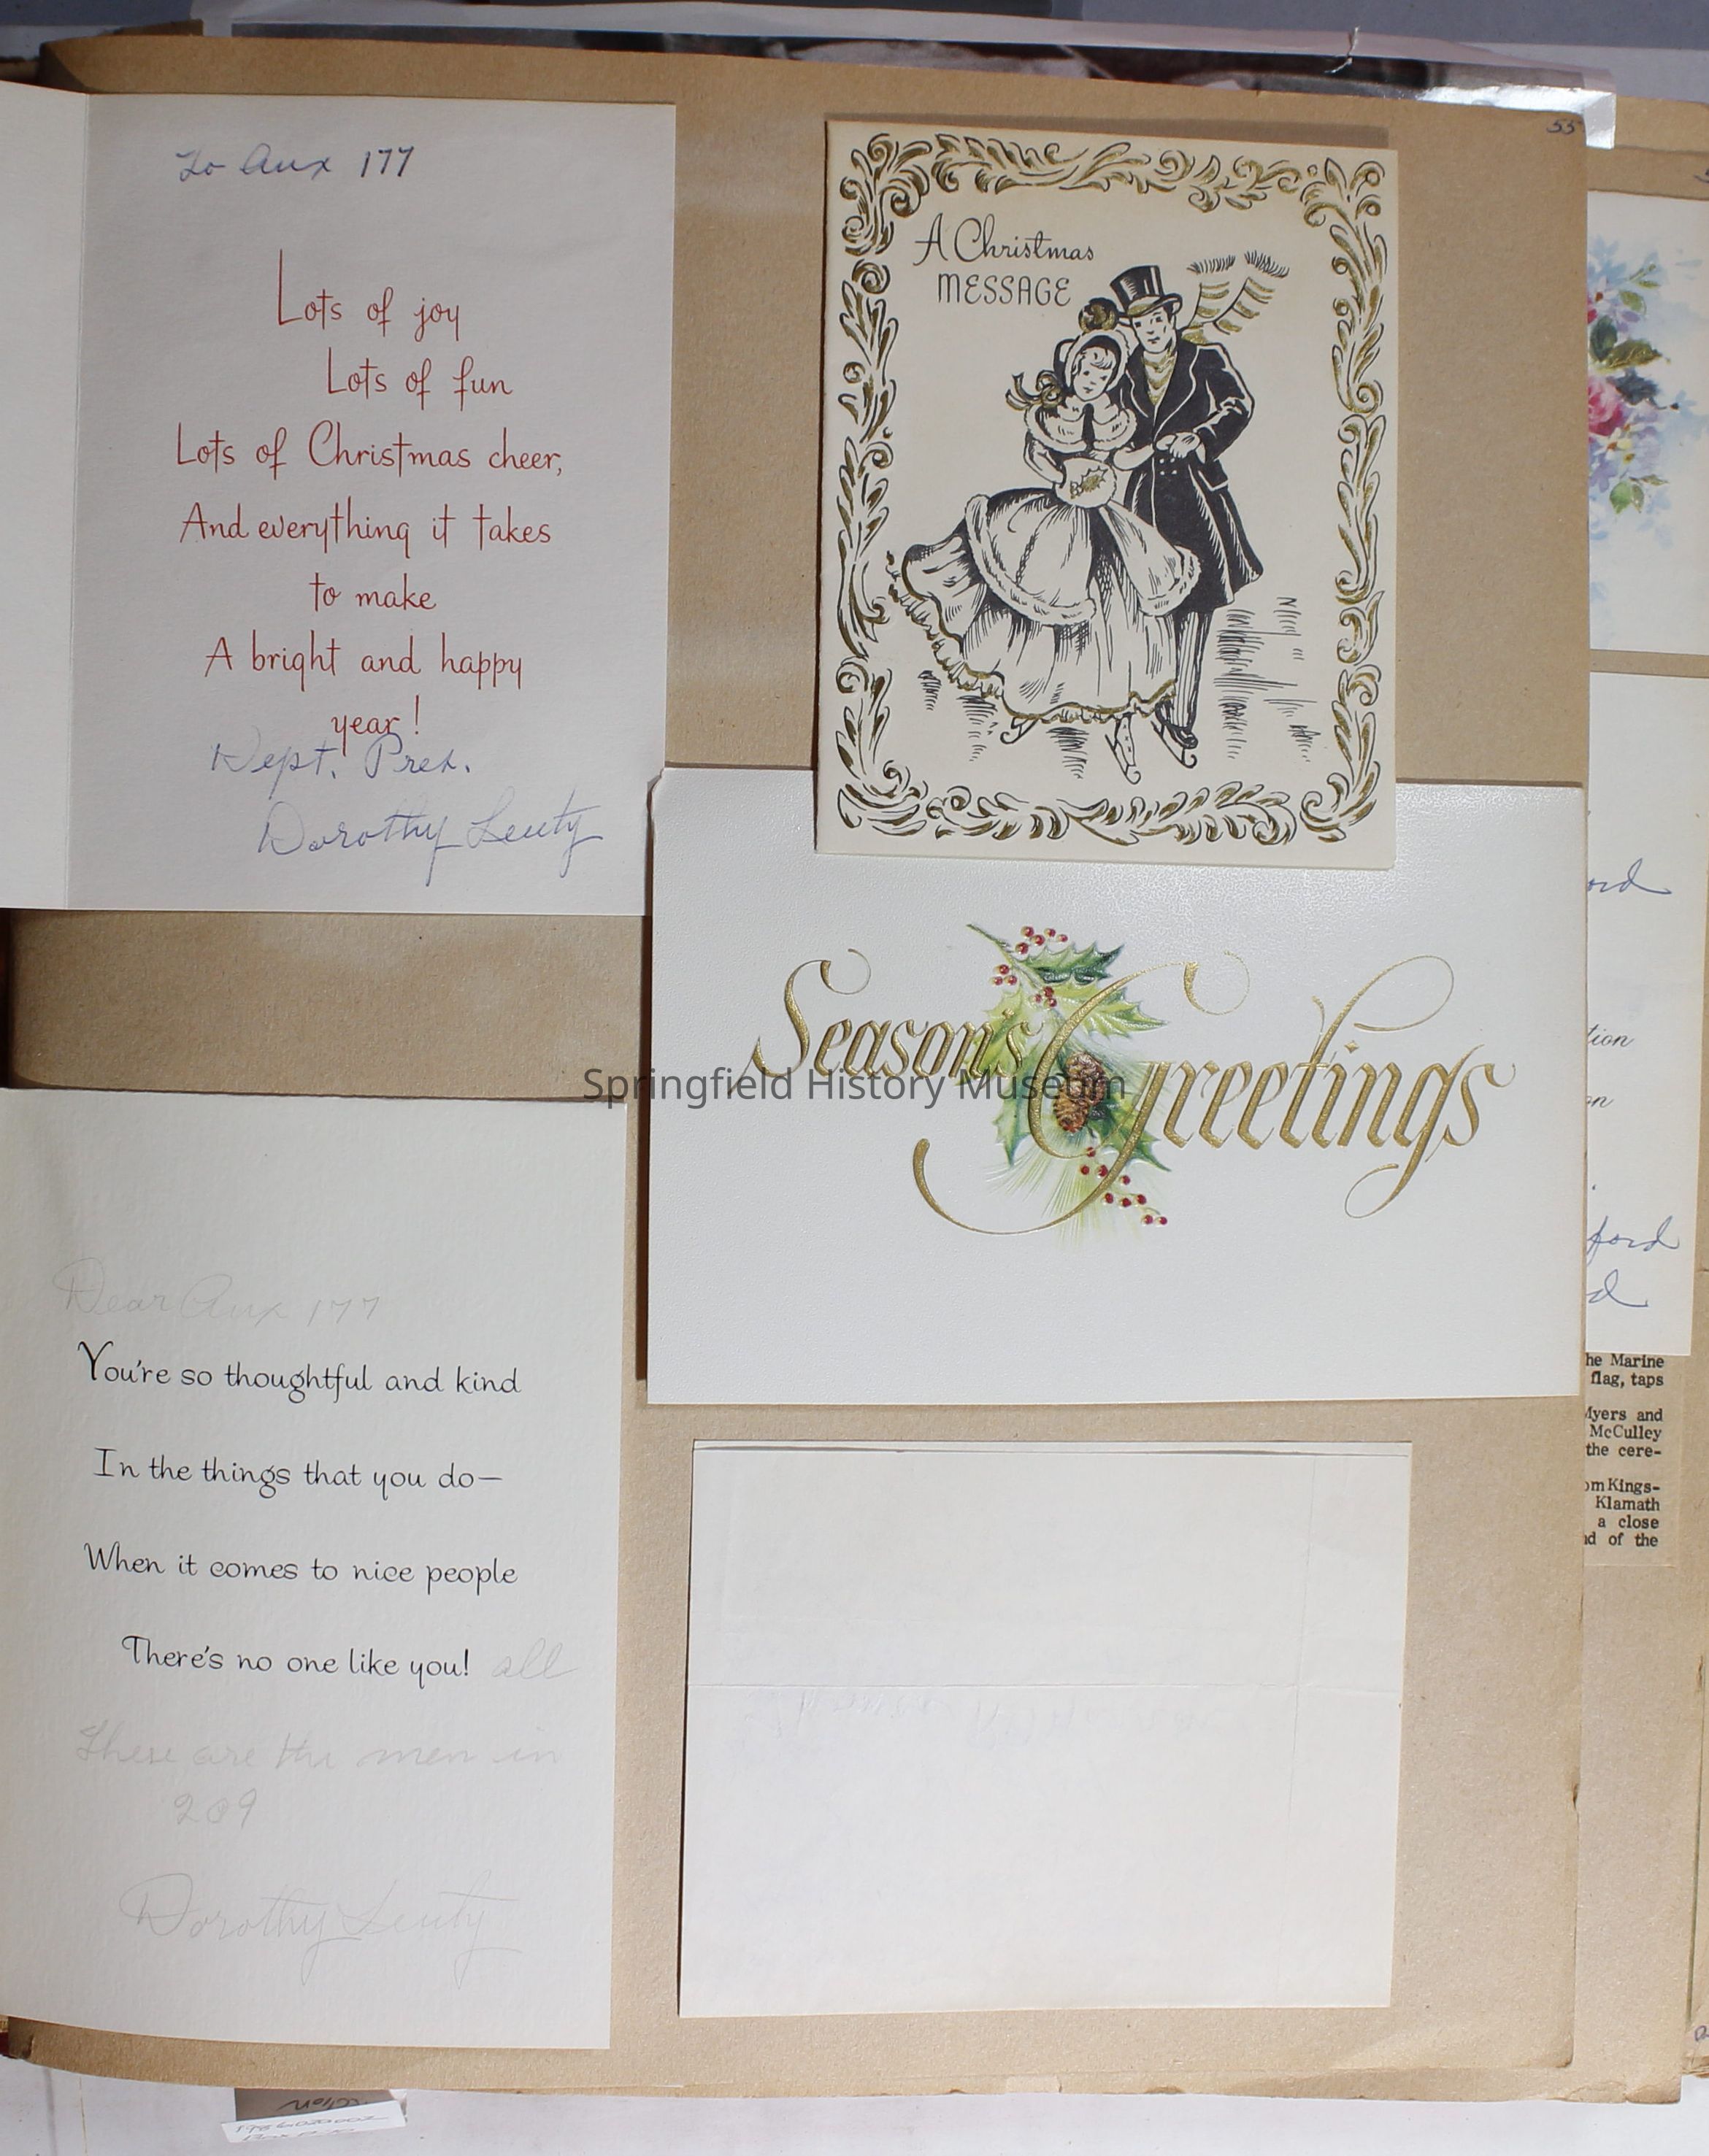 To Aux 177
Lots of joy
Lots of fun
Lots of Christmas cheer,
And everything it takes
to make
A bright and happy
year!
Dept. Pres.
Dorothy Leuty
Dear Aux 177
You're so thoughtful and kind
In the things that you do—
When it comes to nice people
There's no one like you! all
These are the men in
209
Dorothy Leuty
55
A Christmas
MESSAGE
Season's Greetings
Springfield History Museum
ord
tion
on
ford
d
he Marine
flag, taps
Myers and
McCulley
the cere-
om Kings-
Klamath
a close
nd of the